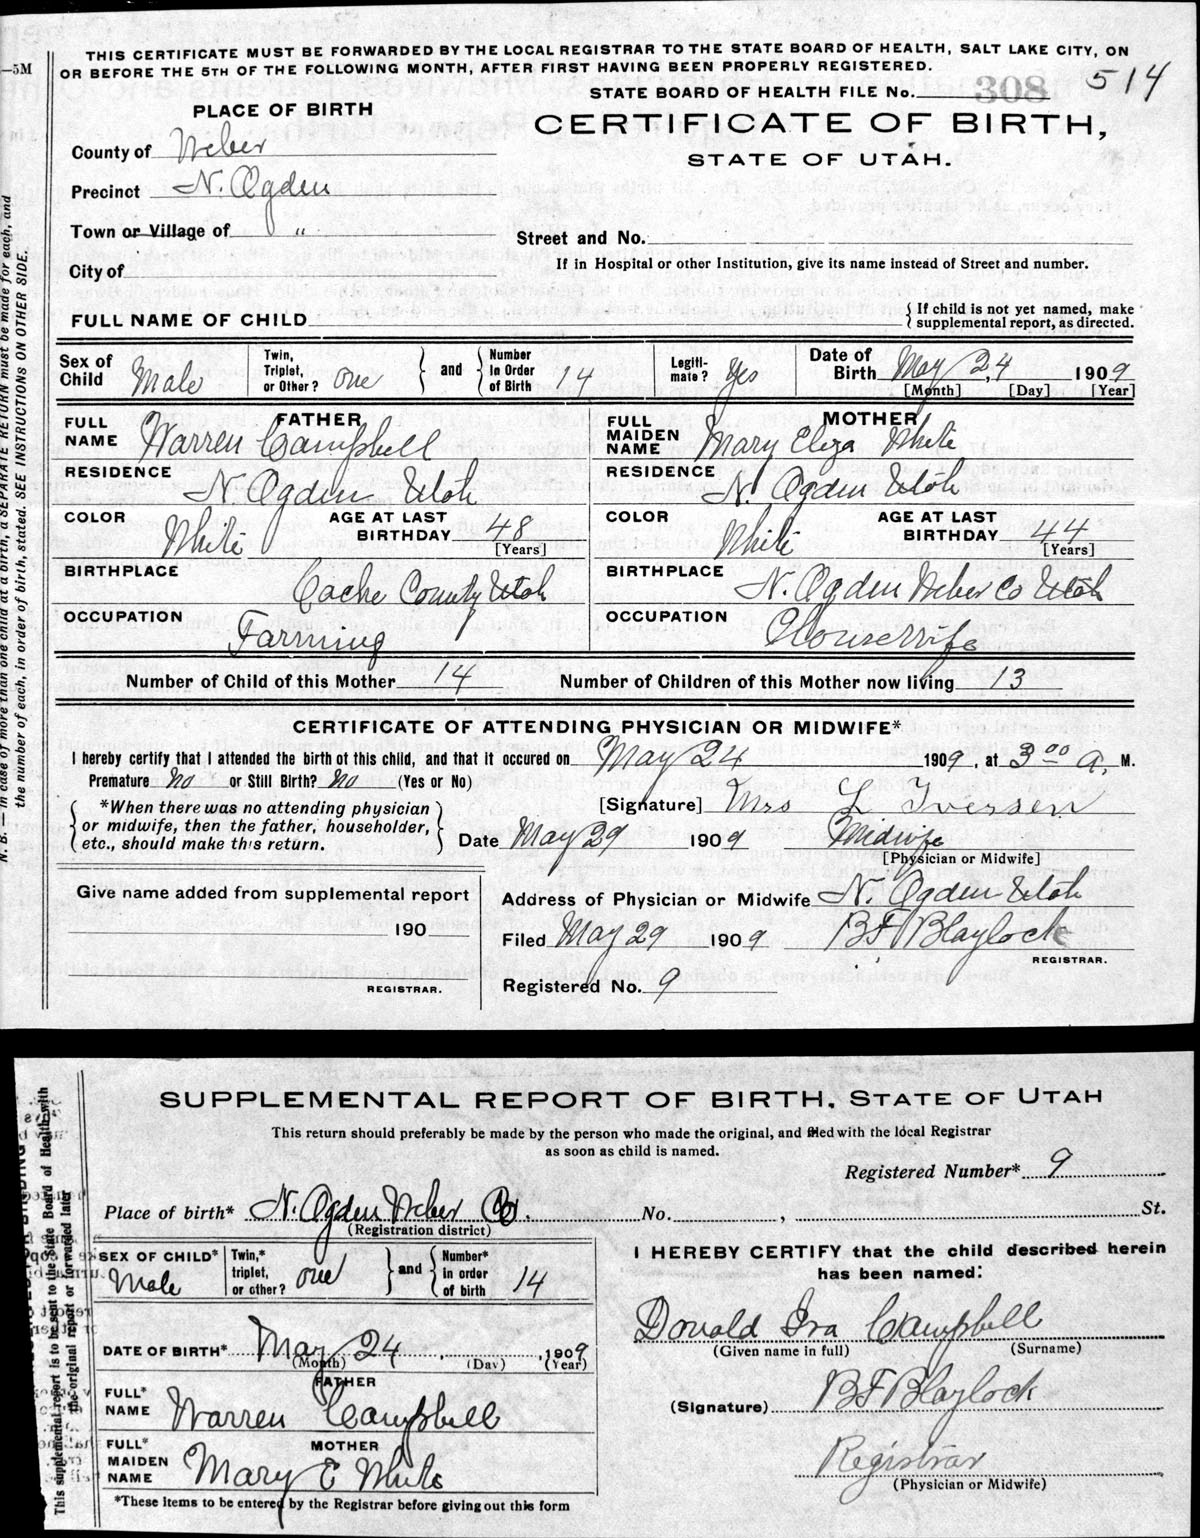 THIS CERTIFICATE MUST BE FORWARDED BY THE LOCAL REGISTRAR TO THE STATE BOARD OF HEALTH, SALT LAKE CITY, ON
—5M OR BEFORE THE 5TH OF THE FOLLOWING MONTH, AFTER FIRST HAVING BEEN PROPERLY REGISTERED.
STATE BOARD OF HEALTH FILE No. 308 514
PLACE OF BIRTH
CERTIFICATE OF BIRTH,
STATE OF UTAH.
County of Weber
Precinct N. Ogden
Town or Village of "
Street and No.
City of
If in Hospital or other Institution, give its name instead of Street and number.
FULL NAME OF CHILD { If child is not yet named, make supplemental report, as directed.
Sex of Child Male Twin, Triplet, or Other? one } and { Number in Order of Birth 14 Legiti- mate? Yes Date of Birth May 24, 1909
[Month] [Day] [Year]
FATHER MOTHER
FULL NAME Warren Campbell FULL MAIDEN NAME Mary Eliza White
RESIDENCE N. Ogden Utah RESIDENCE N. Ogden Utah
COLOR White AGE AT LAST BIRTHDAY 48 [Years] COLOR White AGE AT LAST BIRTHDAY 44 [Years]
BIRTHPLACE Cache County Utah BIRTHPLACE N. Ogden Weber Co Utah
OCCUPATION Farming OCCUPATION Housewife
Number of Child of this Mother 14 Number of Children of this Mother now living 13
CERTIFICATE OF ATTENDING PHYSICIAN OR MIDWIFE*
I hereby certify that I attended the birth of this child, and that it occured on May 24 1909, at 3 00 A. M.
Premature No or Still Birth? No (Yes or No)
{ *When there was no attending physician or midwife, then the father, householder, etc., should make this return. }
[Signature] Mrs L Iversen
Date May 29 1909 Midwife
[Physician or Midwife]
Give name added from supplemental report
190
REGISTRAR.
Address of Physician or Midwife N. Ogden Utah
Filed May 29 1909 BF Blaylock
REGISTRAR.
Registered No. 9
N. B. — In case of more than one child at a birth, a SEPARATE RETURN must be made for each, and
the number of each, in order of birth, stated. SEE INSTRUCTIONS ON OTHER SIDE.
SUPPLEMENTAL REPORT OF BIRTH, STATE OF UTAH
This return should preferably be made by the person who made the original, and filed with the local Registrar
as soon as child is named.
Registered Number* 9
Place of birth* N. Ogden Weber Co. No. , St.
(Registration district)
SEX OF CHILD* Male Twin,* triplet, or other? one } and { Number* in order of birth 14
I HEREBY CERTIFY that the child described herein
has been named:
Donald Ira Campbell
(Given name in full) (Surname)
DATE OF BIRTH* May 24, 1909
(Month) (Day) (Year)
FATHER
FULL* NAME Warren Campbell
(Signature) BF Blaylock
MOTHER
FULL* MAIDEN NAME Mary E White
Registrar
(Physician or Midwife)
*These items to be entered by the Registrar before giving out this form
This supplemental report is to be sent to the State Board of Health with
the original report or forwarded later